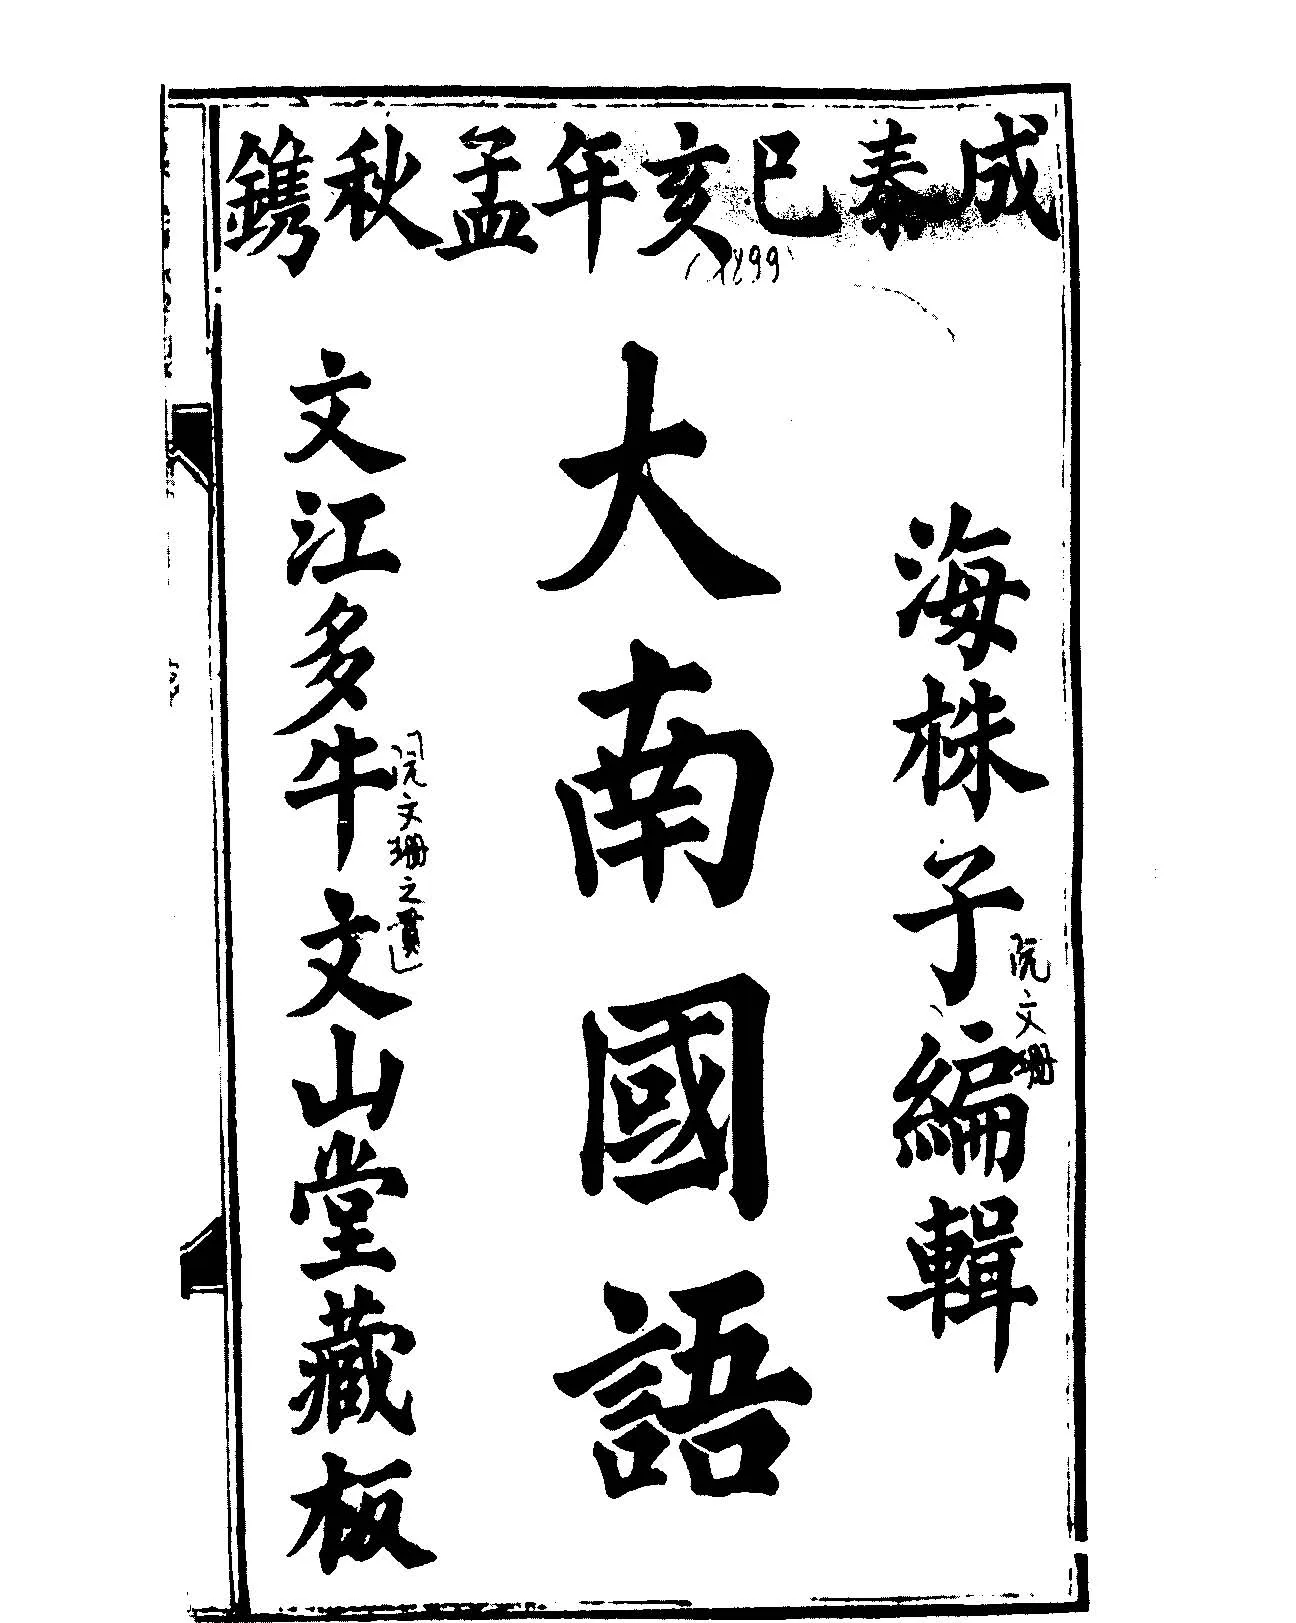 成泰己亥年孟秋鐫
(1899)
海株子編輯
阮文珊
大南國語
文江多牛文山堂藏板
「阮文珊之貫」